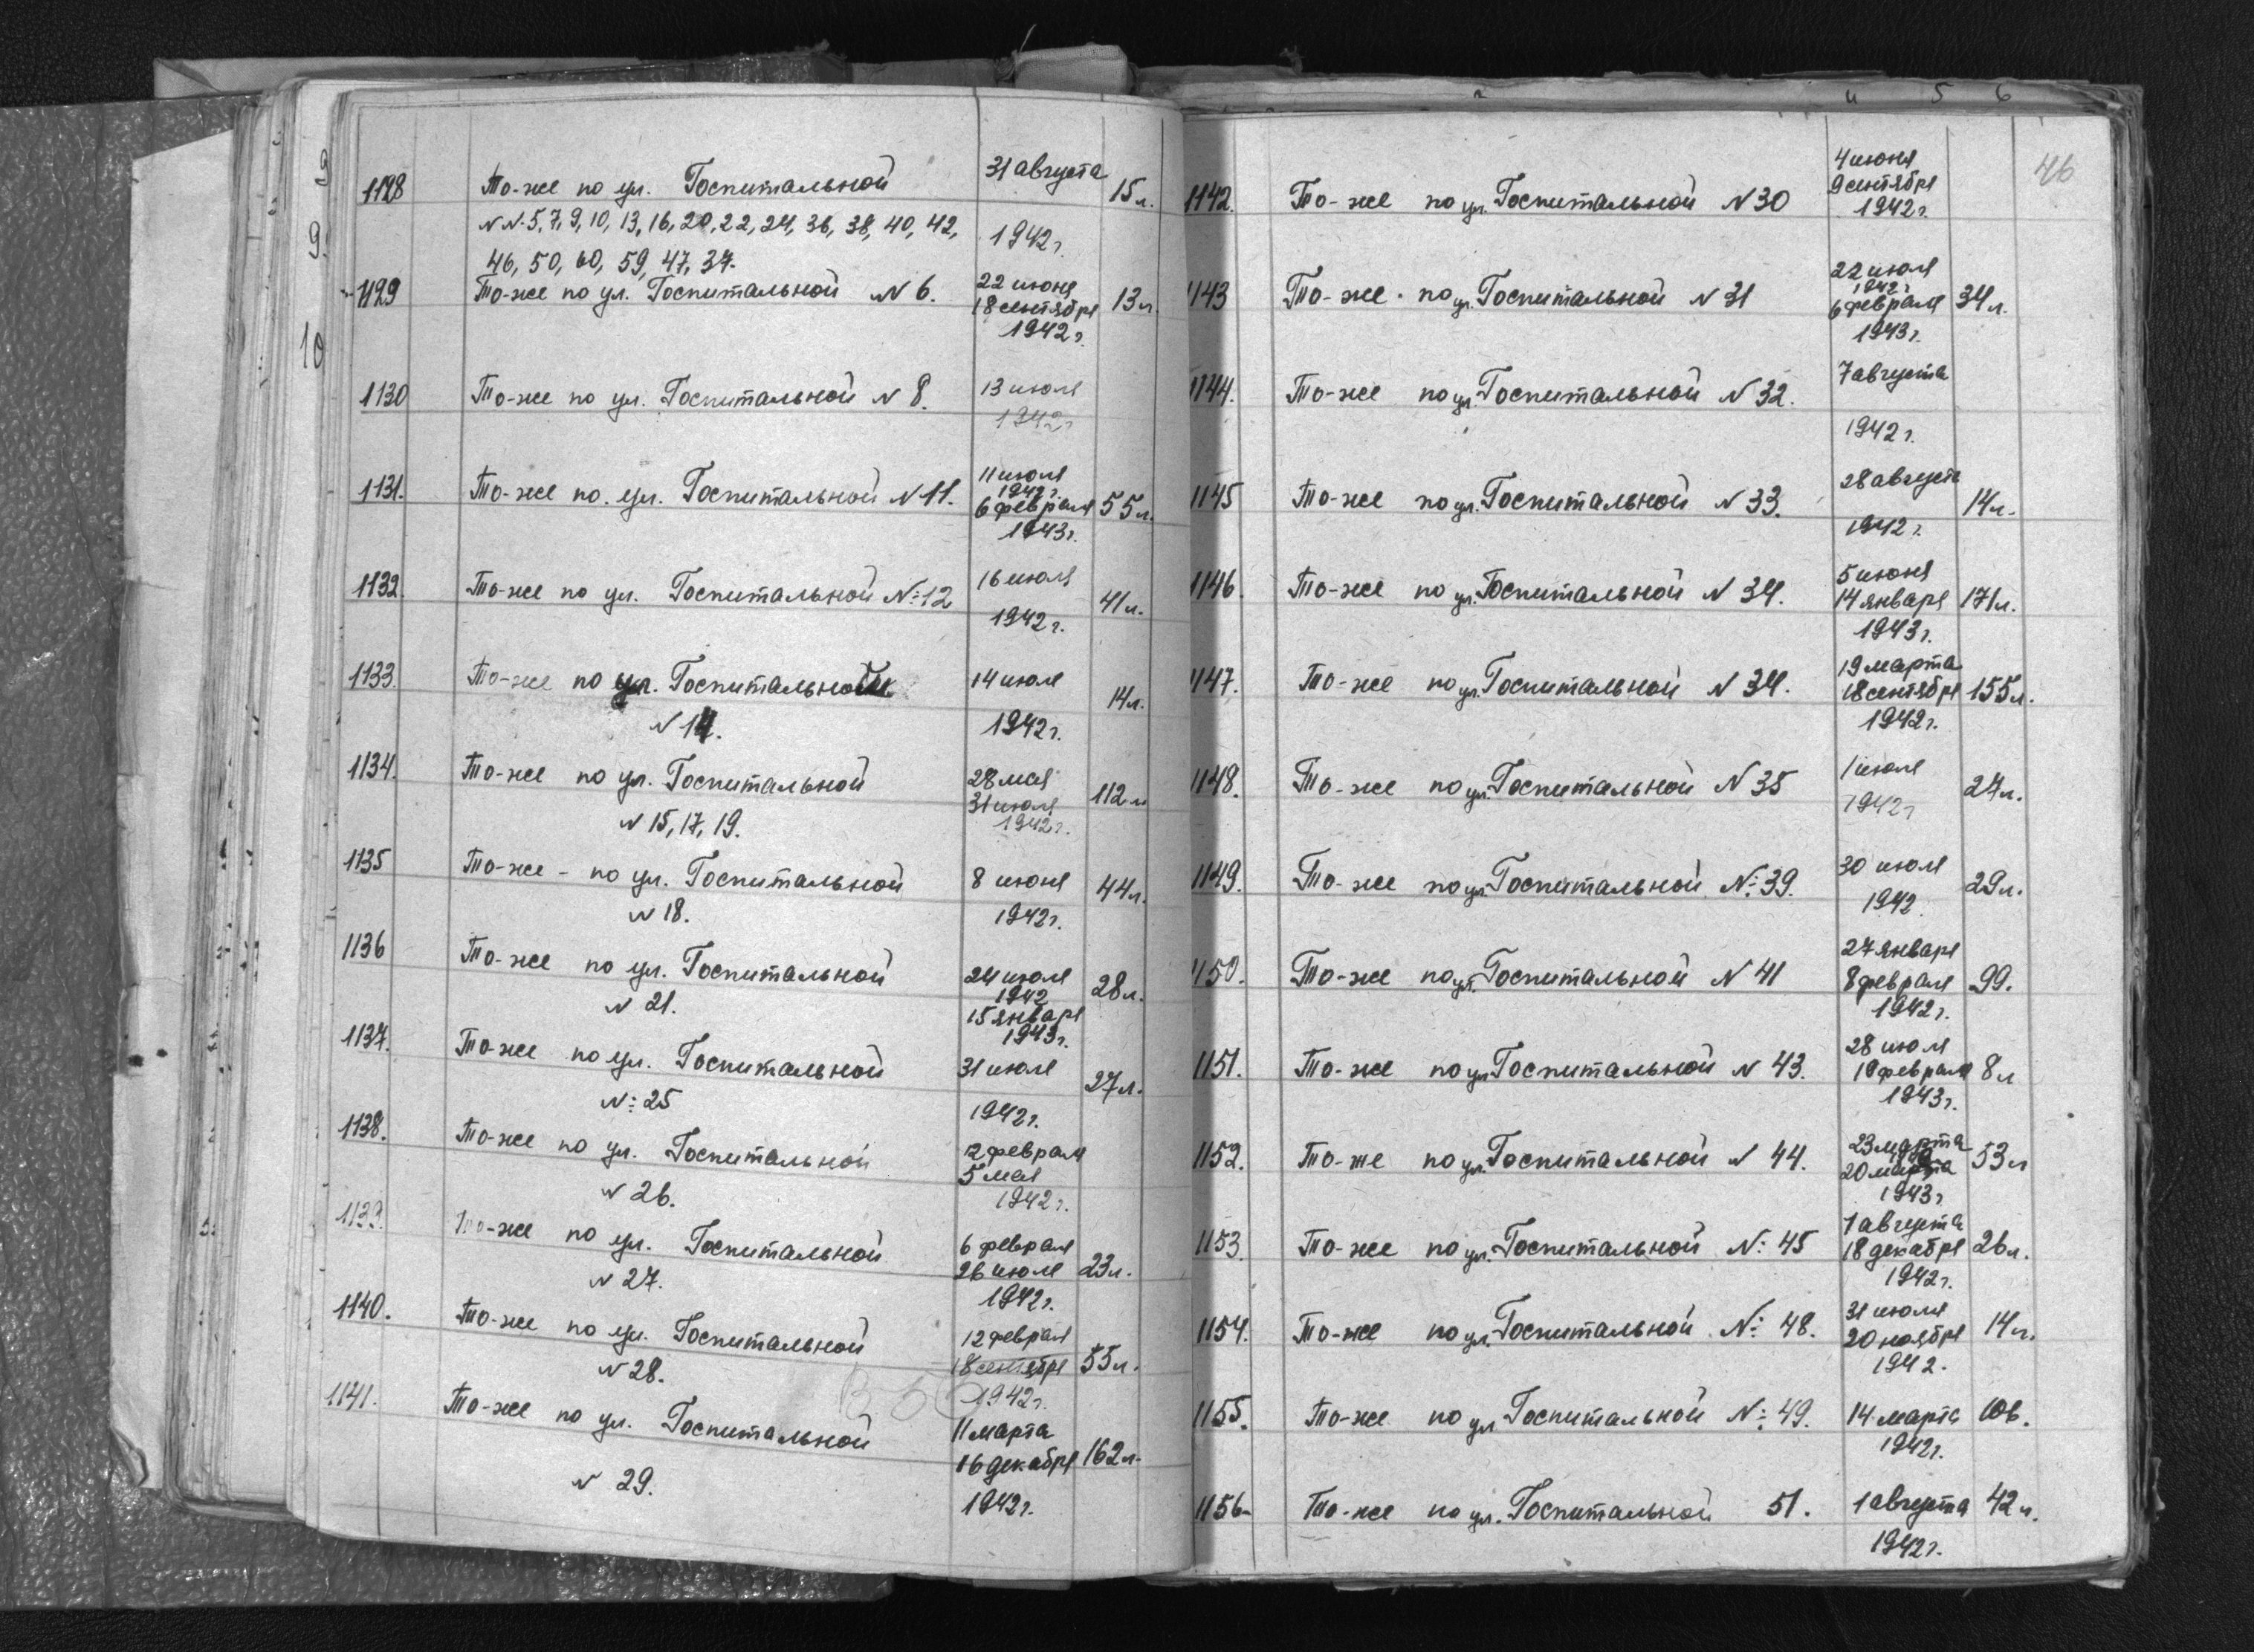 9
9.
10
1128 То-же по ул. Госпитальной 31 августа 15 л.
N N: 5, 7, 9, 10, 13, 16, 20, 22, 24, 36, 38, 40, 42, 1942 г.
46, 50, 60, 59, 47, 37.
1129 То-же по ул. Госпитальной N 6. 22 июня 13 л.
18 сентября
1942 г.
1130 То-же по ул. Госпитальной N 8. 13 июля
1942 г
1131. То-же по. ул. Госпитальной N 11. 11 июля
1942 г.
6 февраля 55 л.
1943 г.
1132. То-же по ул. Госпитальной N: 12 16 июля 41 л.
1942 г.
1133. То-же по ул. Госпитальной 14 июля 14 л.
N 14. 1942 г.
1134. То-же по ул. Госпитальной 28 мая 112 л
31 июля
N 15, 17, 19. 1942 г.
1135 То-же - по ул. Госпитальной 8 июня 44 л.
N 18. 1942 г.
1136 То-же по ул. Госпитальной 24 июля 28 л.
1942
N 21. 15 января
1943 г.
1137. То-же по ул. Госпитальной 31 июля 27 л.
N: 25 1942 г.
1138. То-же по ул. Госпитальной 2 февраля
5 мая
N 26. 1942 г.
1139. То-же по ул. Госпитальной 6 февраля
26 июля 23 л.
N 27. 1942 г.
1140. То-же по ул. Госпитальной 12 февраля
18 сентября 55 л.
N 28. 1942 г.
1141. То-же по ул. Госпитальной 11 марта
16 декабря 162 л.
N 29. 1942 г.
и 5 6
46
1142. То-же по ул. Госпитальной N 30 4 июня
9 сентября
1942 г.
1143 То-же по ул. Госпитальной N 31 22 июля
1942 г
6 февраля 34 л.
1943 г.
1144. То-же по ул. Госпитальной N 32. 7 августа
1942 г.
1145 То-же по ул. Госпитальной N 33. 28 августа 14 л.
1942 г.
1146. То-же по ул. Госпитальной N 34. 5 июня
14 января 171 л.
1943 г.
1147. То-же по ул. Госпитальной N 34. 19 марта
18 сентября 155 л.
1942 г.
1148. То-же по ул. Госпитальной N 35 1 июля 24 л.
1942 г
1149. То-же по ул. Госпитальной N: 39. 30 июля 29 л.
1942.
1150. То-же по ул. Госпитальной N 41 27 января
8 февраля 99.
1942 г.
1151. То-же по ул. Госпитальной N 43. 28 июля
19 февраля 8 л
1943 г.
1152. То-же по ул. Госпитальной N 44. 23 марта 53 л
20 марта
1943 г
1153. То-же по ул. Госпитальной N: 45 1 августа
18 декабря 26 л.
1942 г.
1154. То-же по ул. Госпитальной N: 48. 31 июля
20 ноября 14 л.
1942.
1155. То-же по ул Госпитальной N: 49. 14 марта 106.
1942 г.
1156 То-же по ул. Госпитальной 51. 1 августа 42 л.
1942 г.